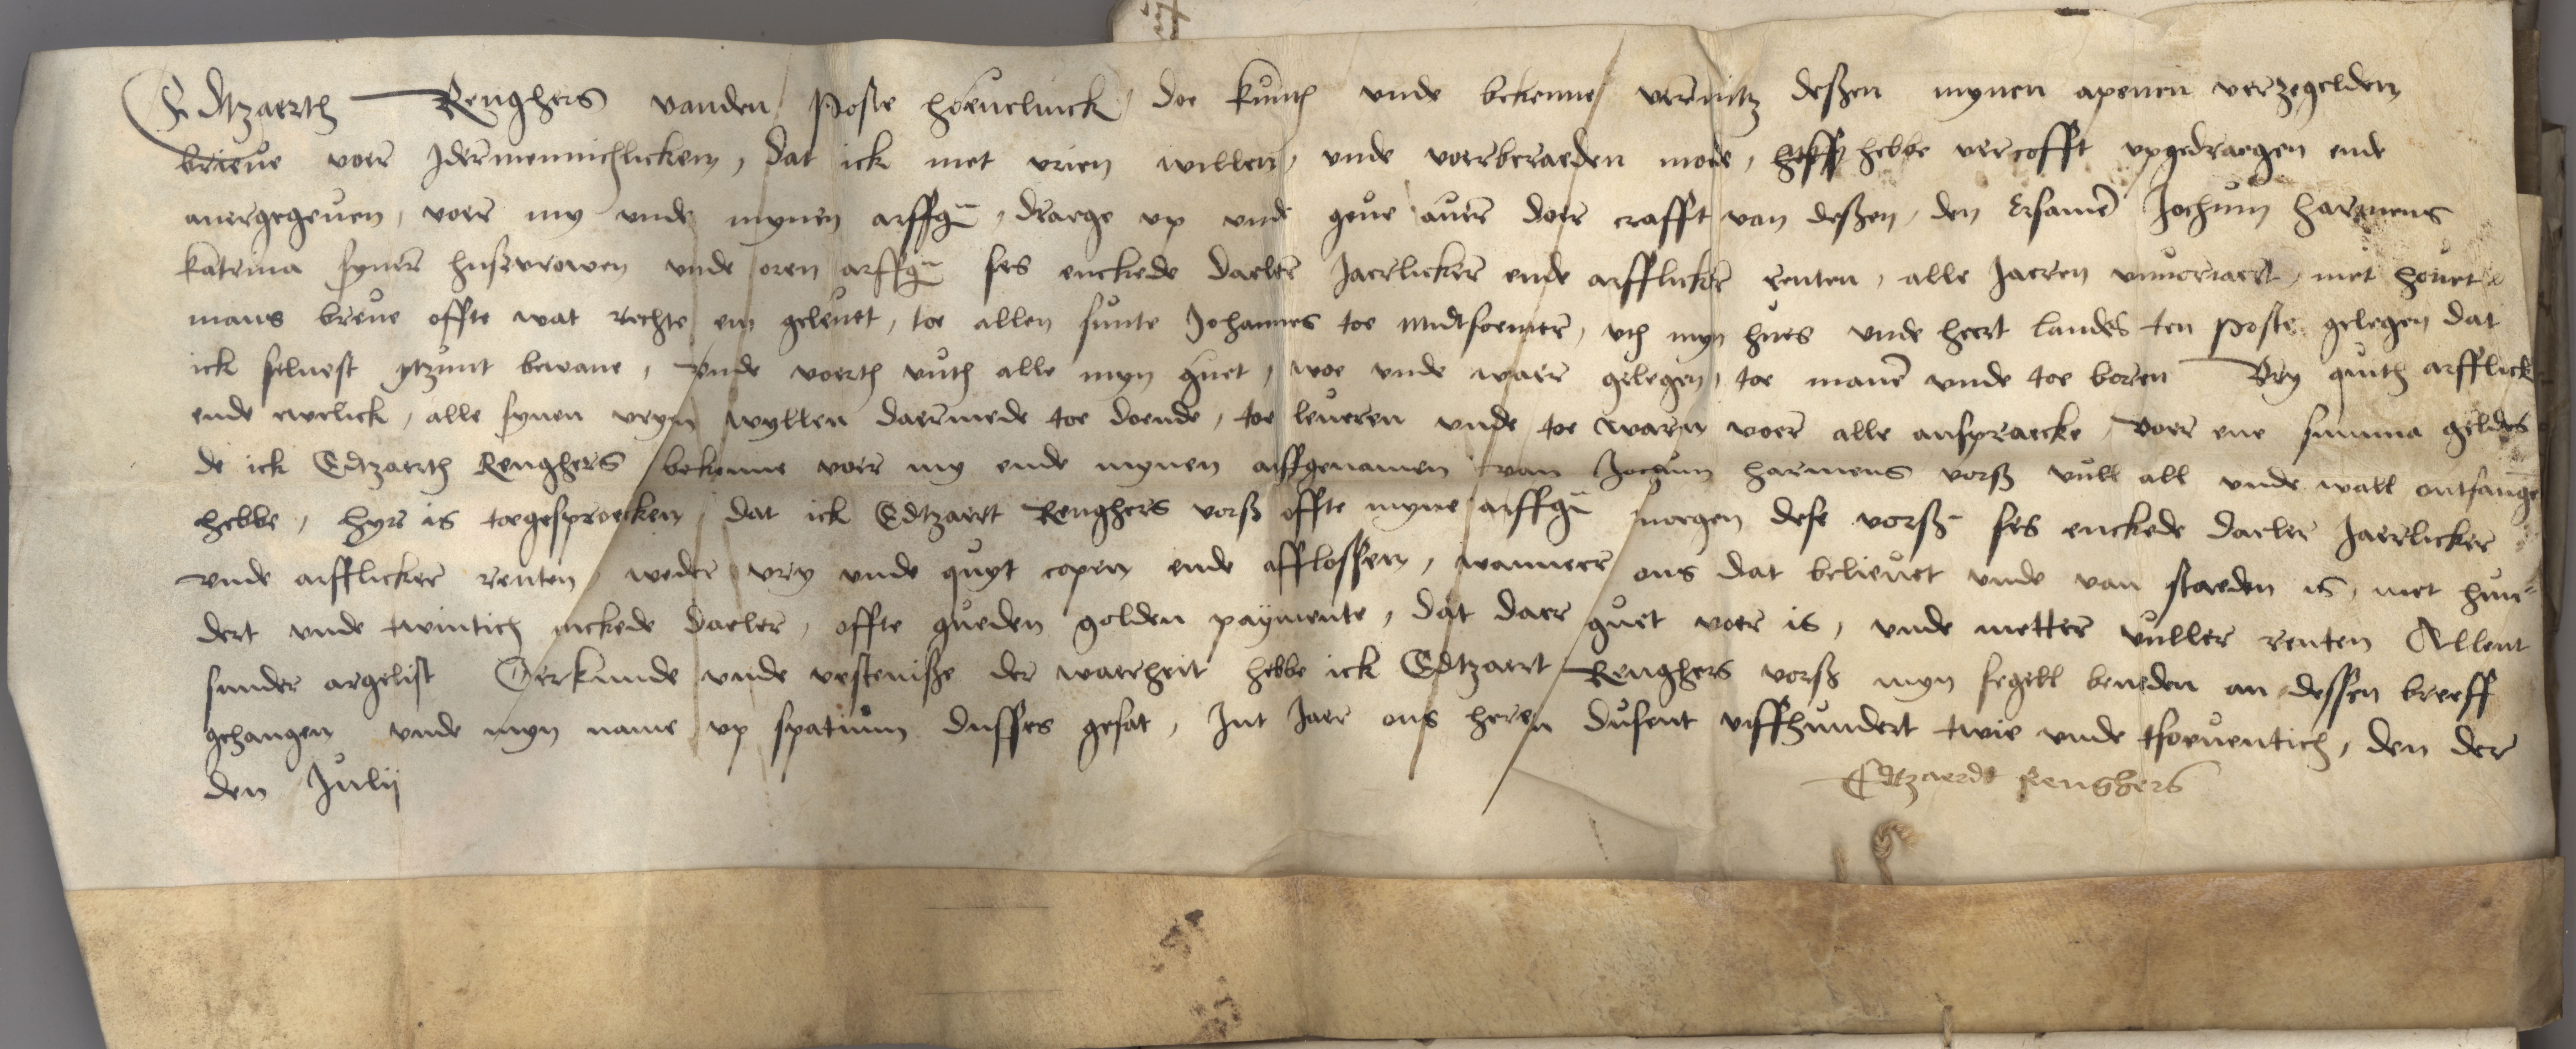 Edtzaerth Renghers vanden Poste hoeuelinck, doe kunth vnde bekenne vermitz deßen mynen apenen verzegelden
brieue voer Idermennichlicken, dat ick met vrien willen, vnde voerberaeden mode, hebbe vercofft vpgedraegen ende
auergegeuen, voer my vnde mynen arffgn, draege vp vnde geue auer doer crafft van deßen, den Ersamen Jochum Harmens
katrina syner husvrowen vnde oren arffgn ses enckede daeler Jaerlicker ende arfflicker renten, alle Jaeren vnuoriaert, met houet
mans breue offte wat rechte em geleuet, toe allen sunte Johannes toe midtsoemer, vth myn hues vnde heert landes ten poste gelegen dat
ick seluest ytzunt bewane, vnde voerth vuth alle myn guet, woe vnde waer gelegen, toe manen vnde toe boren Vry quith arfflick
ende ewelick, alle synen vryn wyllen daermede toe doende, toe leueren vnde toe waren voer alle anspraecke, voer ene summa geldes
de ick Edtzaerth Renghers bekenne voer my ende mynen arffgenamen van Jochum harmens vorß vull all vnde wall ontfange
hebbe, hyr is toegesproecken, dat ick Edtzaert Renghers vorß offte myne arffgn moegen dese vorß ses enckede daeler Jaerlicker
vnde arfflicker renten, weder vry vnde quyt copen ende afflossen, wanneer ons dat belieuet vnde van staeden is, met hun-
dert vnde twintich enckede daeler, offte gueden golden paymente, dat daer guet voer is, vnde metter vuller renten Allent
sunder argelist Oerkunde vnde vesteniße der waerheit hebbe ick Edtzaert Renghers vorß myn segell beneden an dessen breeff
gehangen vnde myn name vp spatium dusses gesat, Int Jaer ons heren dusent viffhundert twie vnde tsoeuentich, den der
den Julij
Edtzaerdt Renghers